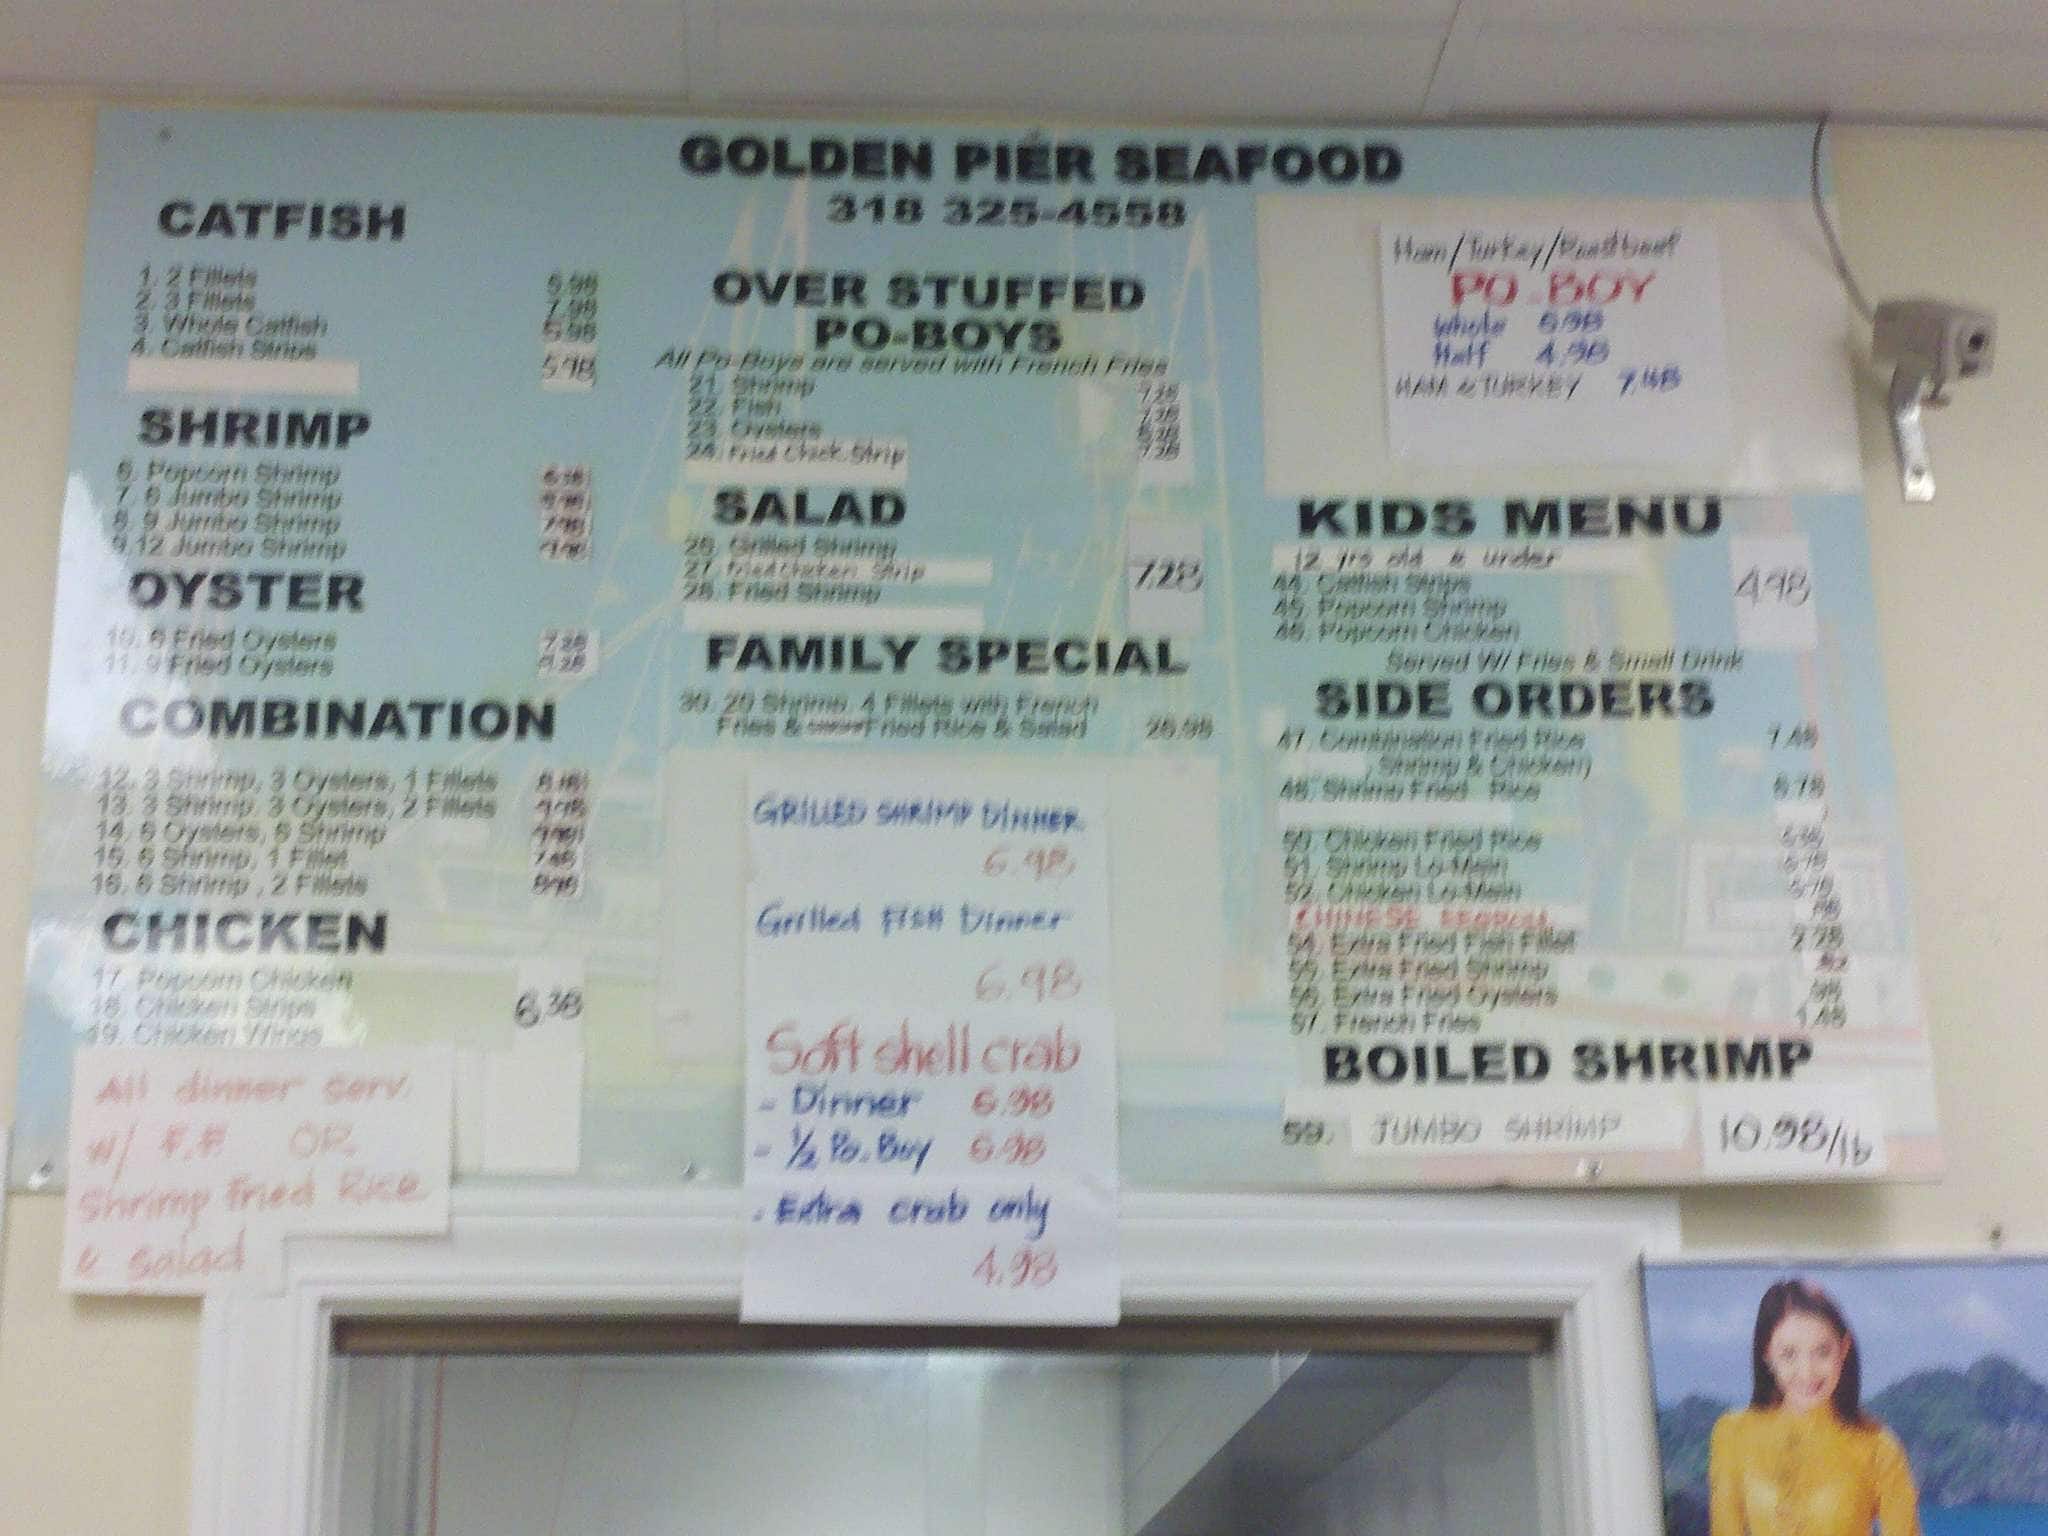 GOLDEN PIER SEAFOOD
318 325-4558
CATFISH
1. 2 Fillets 5.98
2. 3 Fillets 7.98
3. Whole Catfish 5.98
4. Catfish Strips 5.98
SHRIMP
6. Popcorn Shrimp
7. 6 Jumbo Shrimp
8. 9 Jumbo Shrimp 7.98
9. 12 Jumbo Shrimp
OYSTER
10. 6 Fried Oysters 7.28
11. 9 Fried Oysters 9.28
COMBINATION
12. 3 Shrimp, 3 Oysters, 1 Fillets
13. 3 Shrimp, 3 Oysters, 2 Fillets
14. 6 Oysters, 6 Shrimp
15. 6 Shrimp, 1 Fillet 7.48
16. 6 Shrimp , 2 Fillets
CHICKEN
17. Popcorn Chicken
18. Chicken Strips 6.38
19. Chicken Wings
All dinner serv.
w/ F.F OR
Shrimp Fried Rice
& Salad
OVER STUFFED
PO-BOYS
All Po-Boys are served with French Fries
21. Shrimp 7.28
22. Fish 7.28
23. Oysters
24. Fried Chick. Strip 7.28
SALAD
26. Grilled Shrimp
27. Fried Chicken Strip 7.28
28. Fried Shrimp
FAMILY SPECIAL
30. 20 Shrimp, 4 Fillets with French
Fries & Fried Rice & Salad
GRILLED SHRIMP DINNER
6.98
Grilled FISH Dinner
6.98
Soft shell crab
- Dinner 6.98
- ½ Po.Boy 6.98
- Extra crab only
4.98
Ham/Turkey/Roastbeef
PO-BOY
Whole 6.98
Half 4.98
HAM & TURKEY 7.48
KIDS MENU
12 yrs old & under
44. Catfish Strips 4.98
45. Popcorn Shrimp
46. Popcorn Chicken
Served W/ Fries & Small Drink
SIDE ORDERS
47. Combination Fried Rice 7.48
, Shrimp & Chicken)
48. Shrimp Fried Rice 6.78
50. Chicken Fried Rice
51. Shrimp Lo-Mein
52. Chicken Lo-Mein
CHINESE EGGROLL
54. Extra Fried Fish Fillet 2.28
55. Extra Fried Shrimp
56. Extra Fried Oysters .98
57. French Fries 1.48
BOILED SHRIMP
59. JUMBO SHRIMP 10.98/lb